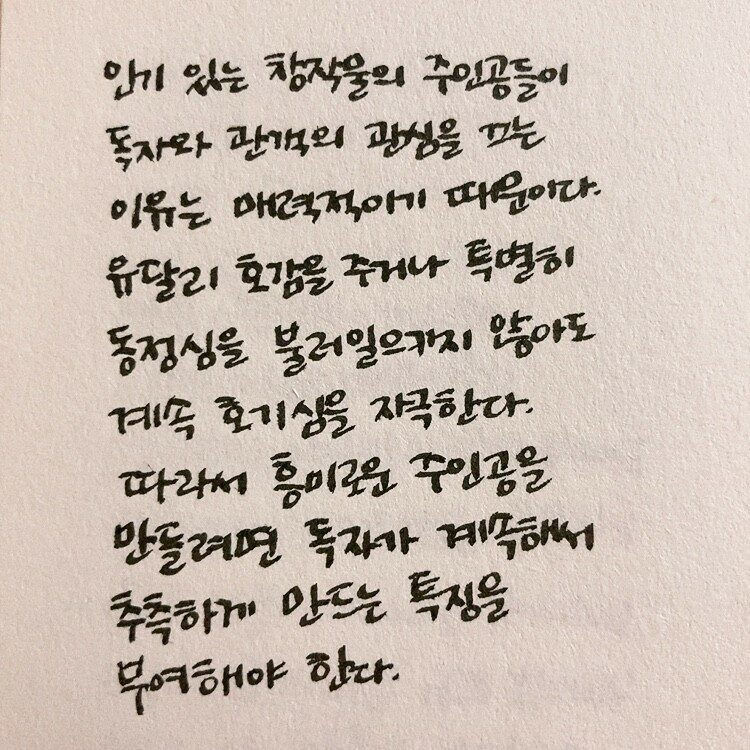 인기 있는 창작물의 주인공들이
독자와 관객의 관심을 끄는
이유는 매력적이기 때문이다.
유달리 호감을 주거나 특별히
동정심을 불러일으키지 않아도
계속 호기심을 자극한다.
따라서 흥미로운 주인공을
만들려면 독자가 계속해서
추측하게 만드는 특징을
부여해야 한다.